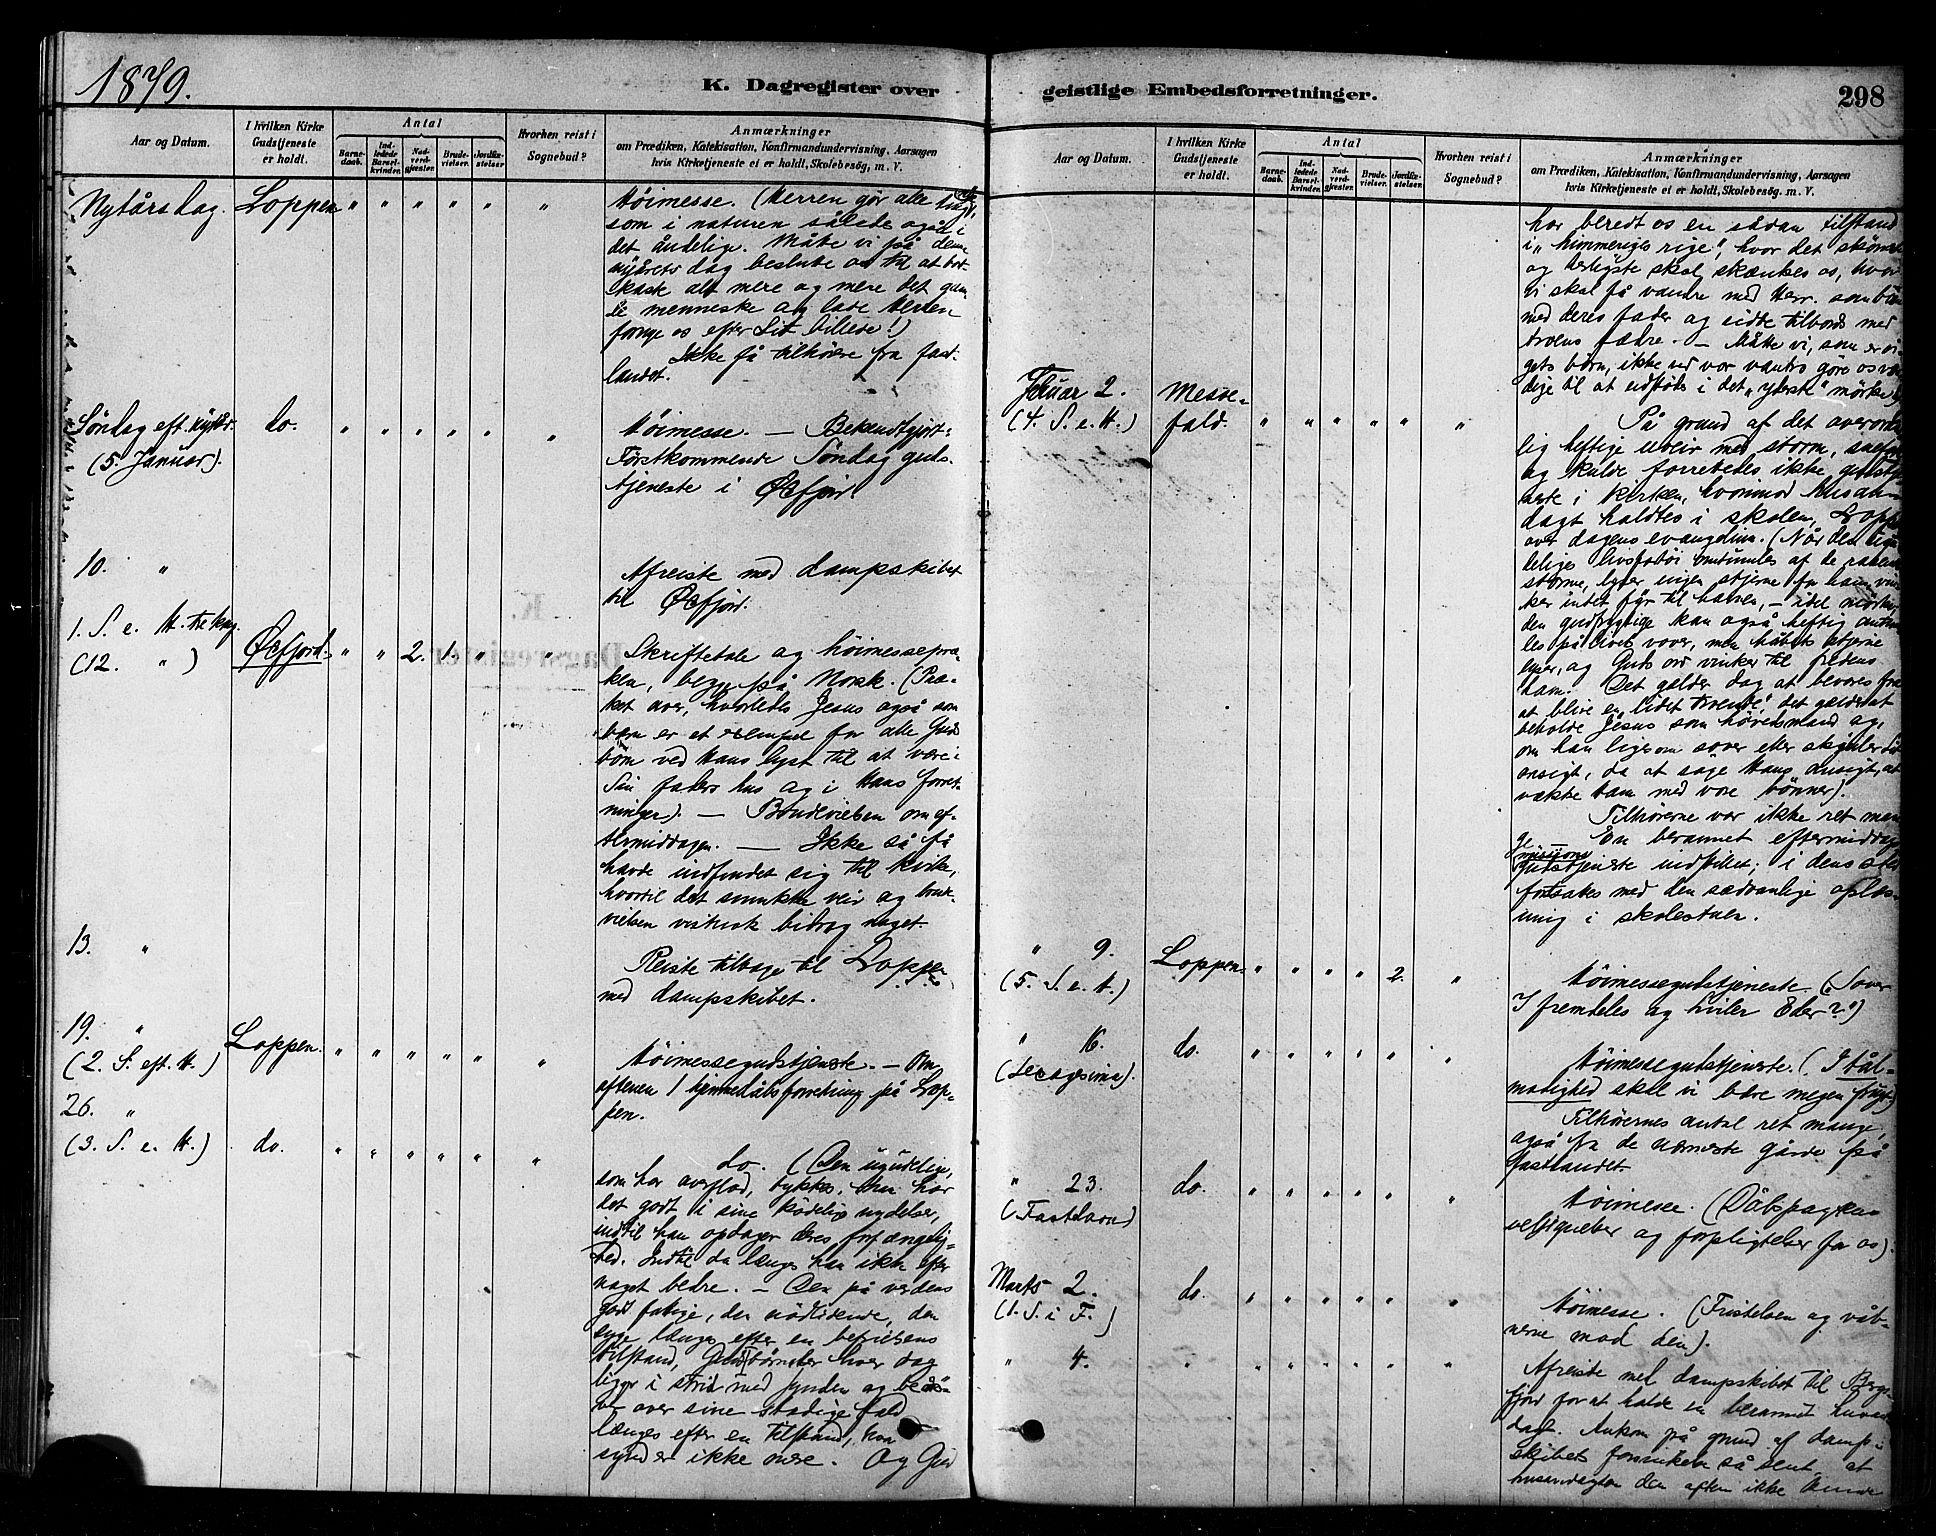 1879.
K. Dagregister over
Aar og Datum.
I hvilken Kirke Gudstjeneste er holdt.
Antal
Barnedaab.
Indledede Barselkvinder.
Nadverdgjester.
Brudevielser.
Jordfæstelser.
Hvorhen reist i Sognebud?
Anmærkninger
om Prædiken, Katekisation, Konfirmandundervisning, Aarsagen
hvis Kirketjeneste ei er holdt, Skolebesøg, m. V.
Nytårsdag. Loppen " " " " " " Höimesse. (Herren gör alle ting nye,
som i naturen således også i
det åndelige. Måtte vi på denne
nyårets dag beslute os til at bort-
kaste alt mere og mere det gam-
le menneske og lade Herren
forny os efter Sit billede!)
Ikke få tilhörere fra fast-
landet.
Söndag eft. nytår. do. " " " " " " Höimesse. — Bekendtgjort:
(5. Januar). Förstkommende Söndag guds-
tjeneste i Öxfjord.
10. " Afreiste med dampskibet
til Öxfjord.
1. S. e. H. tre kong.
(12. " ) Öxfjord. " " 2. 1. " " Skriftetale og höimessepræ-
ken, begge på Norsk. (Præ-
ket over, hvorledes Jesus også som
barn er et exempel for alle Guds
börn ved Hans lyst til at være i
Sin faders hus og i Hans forret-
ninger). — Brudevielsen om ef-
termiddagen. — Ikke så få
havde indfundet sig til kirke,
hvortil det smukke veir og brude-
vielsen vistnok bidrog noget.
13. " Reiste tilbage til Loppen
med dampskibet.
19. " Loppen. " " " " " "
(2. S. eft. H.) Höimessegudstjeneste. — Om
aftenen 1 hjemmedåbsforretning på Lop-
pen.
26. "
(3. S. e. H.) do. " " " " " " do. (Den ugudelige,
som har overflod, tykkes, han har
det godt i sine ködelige nydelser,
indtil han opdager deres forfængelig-
hed. Indtil da længes han ikke efter
noget bedre. — Den på verdens
godt fattige, den nödlidende, den
syge længes efter en befrielsens
tilstand, Guds börn der hver dag
ligger i strid med synden og
over sine stadige fald
længes efter en tilstand, hvor
synd er ikke mere. Og Gud
geistlige Embedsforretninger.
298
Aar og Datum.
I hvilken Kirke Gudstjeneste er holdt.
Antal
Barnedaab.
Indledede Barselkvinder.
Nadverdgjester.
Brudevielser.
Jordfæstelser.
Hvorhen reist i Sognebud?
Anmærkninger
om Prædiken, Katekisation, Konfirmandundervisning, Aarsagen
hvis Kirketjeneste et er holdt, Skolebesög m. V.
har beredt os en sådan tilstand
i "himmeriges rige", hvor det skönneste
og herligste skal skænkes os, hvor
vi skal få vandre med Herr. som börn
med deres fader og sidde tilbords med
troens fædre. — Måtte vi, som er ri-
gets börn, ikke ved vor vantro göre os vær-
dige til at udstödes i det "yderste" mörke.)
Februar 2. Messe-
(4. S. e. H.) fald. " " " " " " På grund af det overordent-
lig heftige uveir med storm, snefog
og kulde forrettedes ikke gudstje-
neste i kirken, hvorimod husan-
dagt holdtes i skolen, Loppen
over dagens evangelium. (Når det
af de rasende
storme, lyser ingen stjerne for ham, vin-
ker intet fyr til havnen, — idel mörke,
den gudfrygtige kan også heftig antum-
les på livets vover, men håbets stjerne
lyser, og Guds ord vinker til fredens
havn. Det gælder dog at bevares fra
at blive en "lidet troende", det gælder at
beholde Jesus som hövedsmand og,
om han ligesom sover eller skjuler Sit
ansigt, da at söge Hans ansigt, at
vække ham med vore bönner).
Tilhörerne var ikke ret man-
ge. En berammet eftermiddags
missions
gudstjeneste indstillet; i dens sted
fortsattes med den sædvanlige oplæs-
ning i skolestuen.
" 9. Loppen. " " " " 2. "
(5. S. e. H.) Höimessegudstjeneste. ("Sover
I fremdeles og hviler Eder?")
" 16. do. " " " " " "
(Sexagesima). Höimessegudstjeneste. (I tål-
modighed skal vi bære megen frugt)
Tilhörernes antal ret mange,
også fra de nærmeste gårde på
Fastlandet.
" 23. do. " " " " " "
(Fastelavn) Höimesse. (Dåbspagtens
velsignelser og forpligtelser for os).
Marts 2. do. " " " " " "
(1. S. i F.) Höimesse. (Fristelsen og våb-
nene mod den).
" 4. " " " " " " " Afreiste med dampskibet til Bergs-
fjord for at holde en berammet husan-
dagt. Ankom på grund af damp-
skibets forsinkelse så sent, at
husandagten den aften ikke kunde